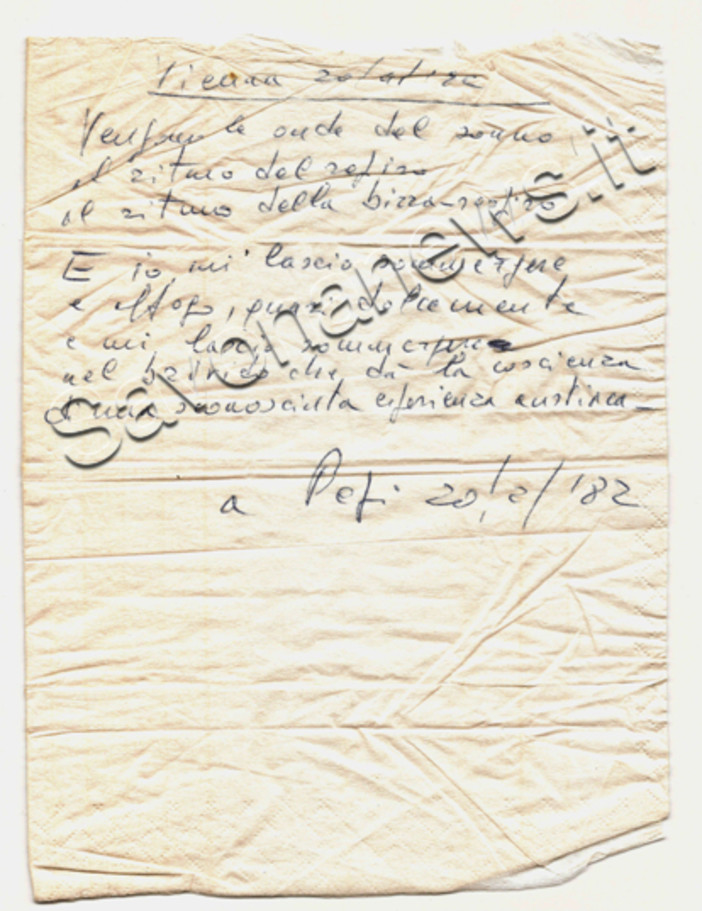 Vienna
Vengono le onde del sonno
al ritmo del respiro
al ritmo della birra-respiro
E io mi lascio sommergere
e affogo, quasi dolcemente
e mi lascio sommergere
nel brivido che dà la coscienza
di una sconosciuta esperienza austriaca
a Pefi 20/2/'82
Salonanews.it